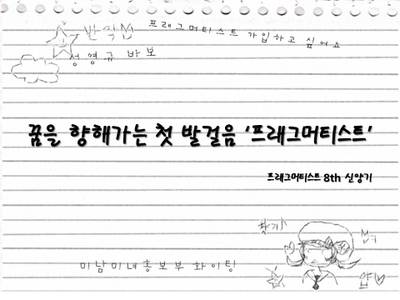 반짝
프래그머티스트 가입하고 싶어요
성영규 바보
꿈을 향해가는 첫 발걸음 ‘프래그머티스트’
프래그머티스트 8th 신양기
미남미녀홍보부 화이팅